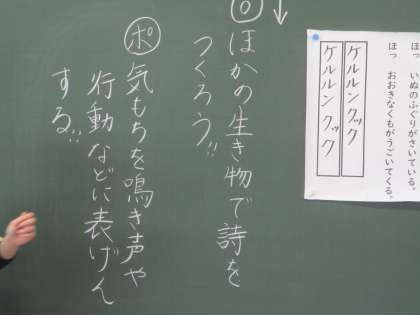 ほっ　いぬのふぐりがさいている。
ほっ　おおきなくもがうごいてくる。
ケルルン クック
ケルルン クック
ほかの生き物で詩を
つくろう!!
ポ
気もちを鳴き声や
行動などに表げん
する!!